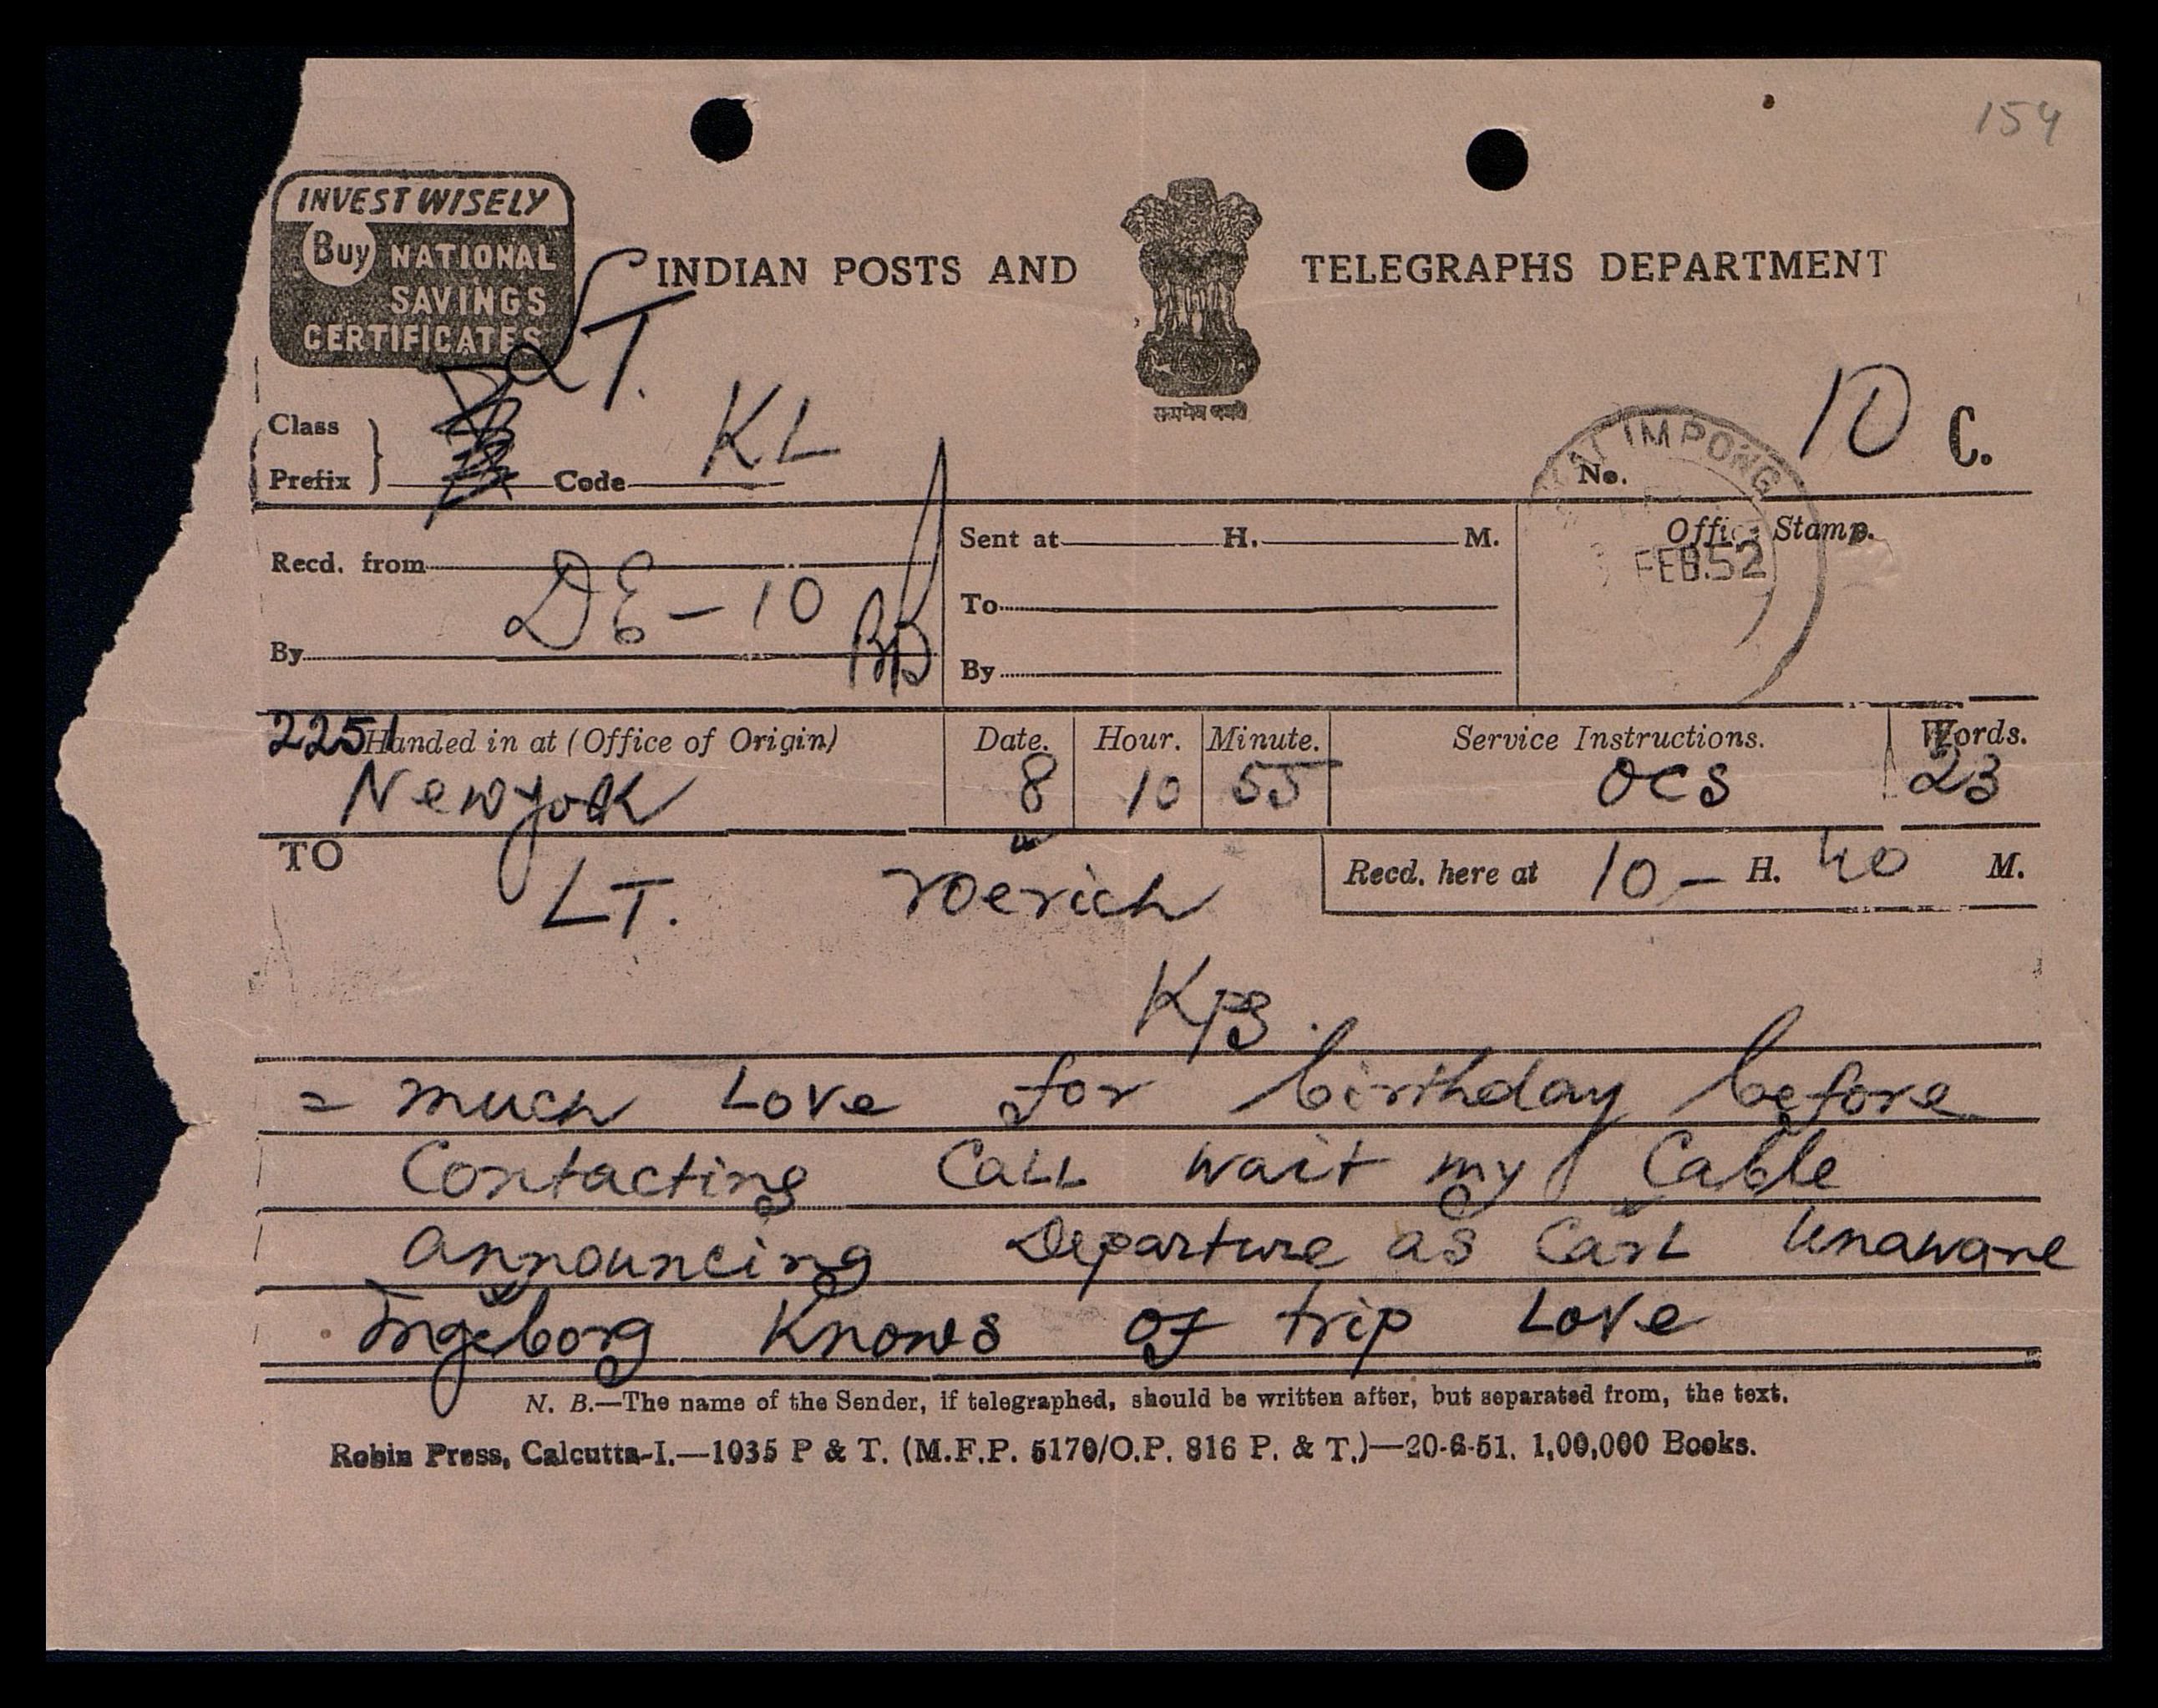 154
INVEST WISELY
Buy NATIONAL
SAVINGS
CERTIFICATES
INDIAN POSTS AND TELEGRAPHS DEPARTMENT
LT.
सत्यमेव जयते
Class
Prefix
Code KL
No. 10 C.
KALIMPONG
FEB.52
Office Stamp.
Recd. from
DE-10
By
Sent at H. M.
To
By
2251 Handed in at (Office of Origin) Date. Hour. Minute. Service Instructions. Words.
Newyork 8 10 55 OCS 23
TO
LT. roerich
Recd. here at 10 - H. 40 M.
KPG.
= much Love for birthday before
Contacting CaLL wait my Cable
announcing Departure as CarL Unaware
Ingeborg Knows of trip Love
N. B.—The name of the Sender, if telegraphed, should be written after, but separated from, the text.
Robin Press, Calcutta-I.—1035 P & T. (M.F.P. 5170/O.P. 816 P. & T.)—20-6-51. 1,00,000 Books.